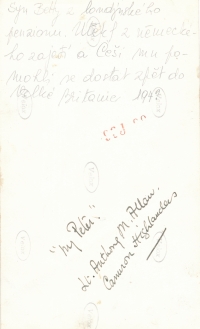 syn Betty z londýnského
penzionu. Utekl z německé-
ho zajetí a Češi mu po-
mohli se dostat zpět do
Velké Britanie 1942
"My Peter"
Lt. Anthony M. Allan.
Cameron Highlanders